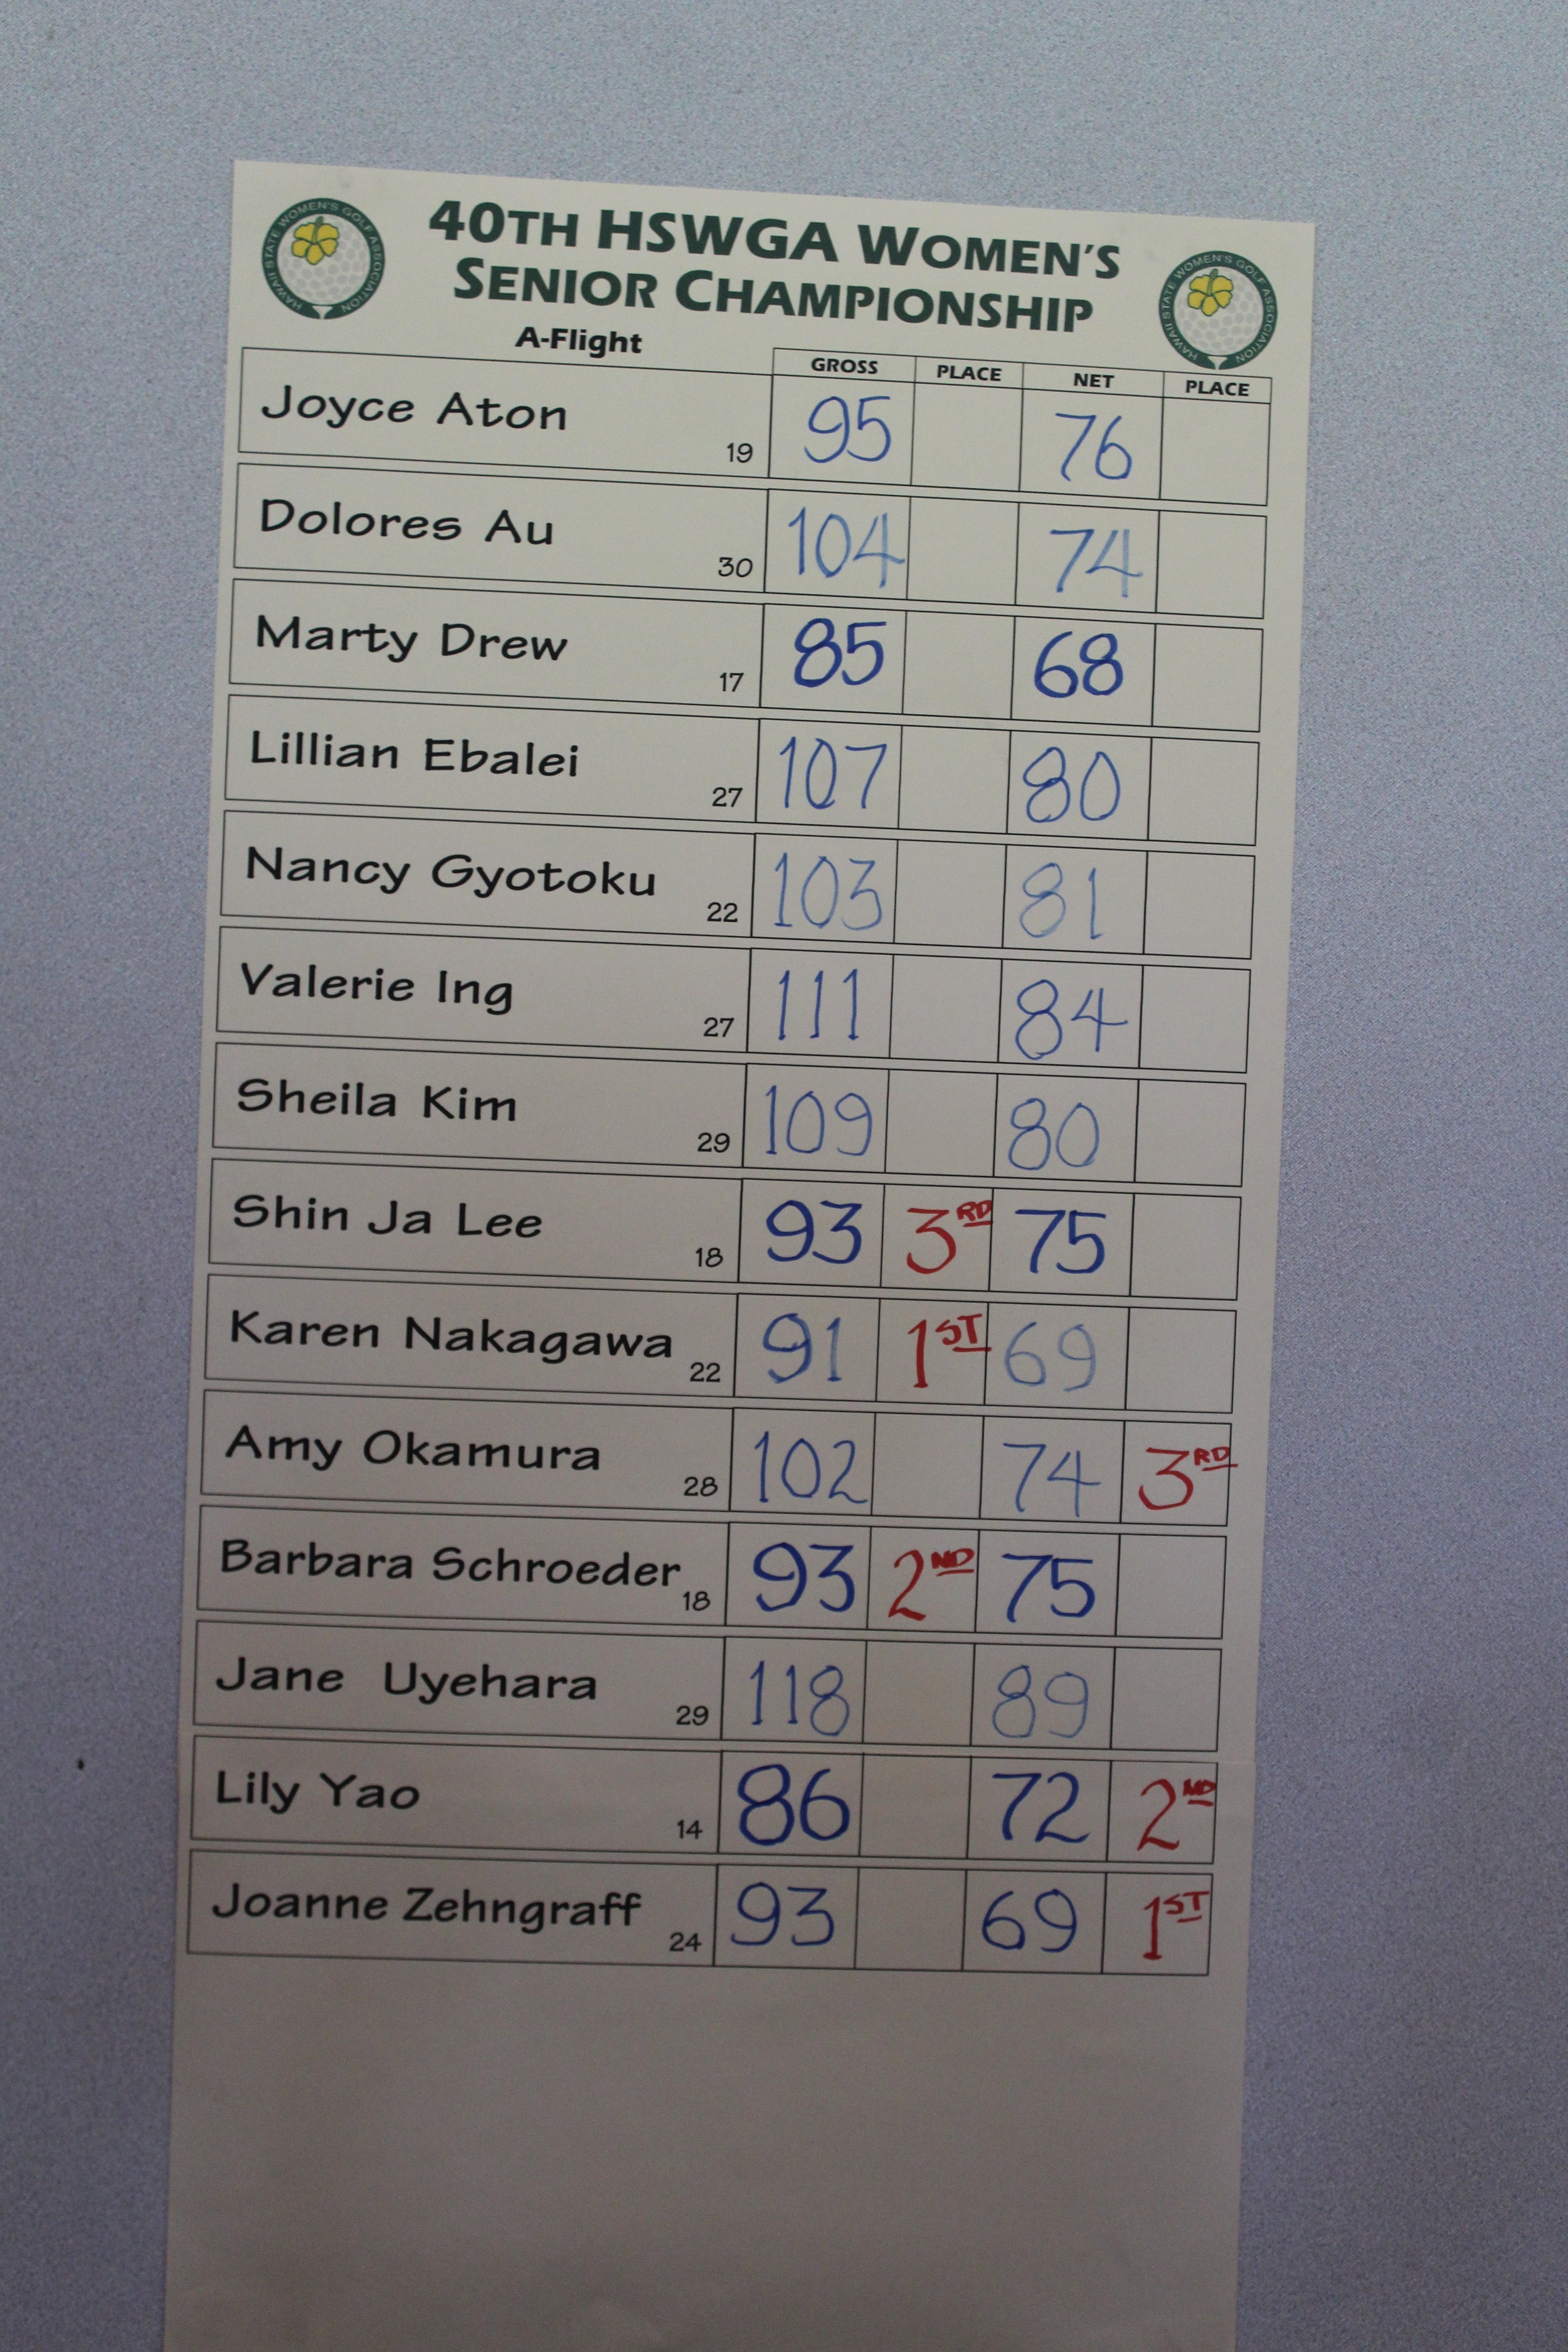 40TH HSWGA WOMEN'S
SENIOR CHAMPIONSHIP
HAWAII STATE WOMEN'S GOLF ASSOCIATION
HAWAII STATE WOMEN'S GOLF ASSOCIATION
A-Flight
GROSS PLACE NET PLACE
Joyce Aton 19 95 76
Dolores Au 30 104 74
Marty Drew 17 85 68
Lillian Ebalei 27 107 80
Nancy Gyotoku 22 103 81
Valerie Ing 27 111 84
Sheila Kim 29 109 80
Shin Ja Lee 18 93 3RD 75
Karen Nakagawa 22 91 1ST 69
Amy Okamura 28 102 74 3RD
Barbara Schroeder 18 93 2ND 75
Jane Uyehara 29 118 89
Lily Yao 14 86 72 2ND
Joanne Zehngraff 24 93 69 1ST